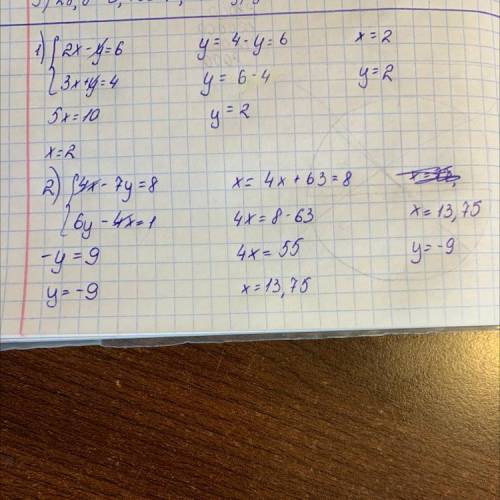 1) { 2x-y=6
3x+y=4
5x=10
x=2
y=4-y=6
y=6-4
y=2
x=2
y=2
2) { 4x-7y=8
6y-4x=1
-y=9
y=-9
x=4x+63=8
4x=8-63
4x=55
x=13,75
x=13,75
y=-9